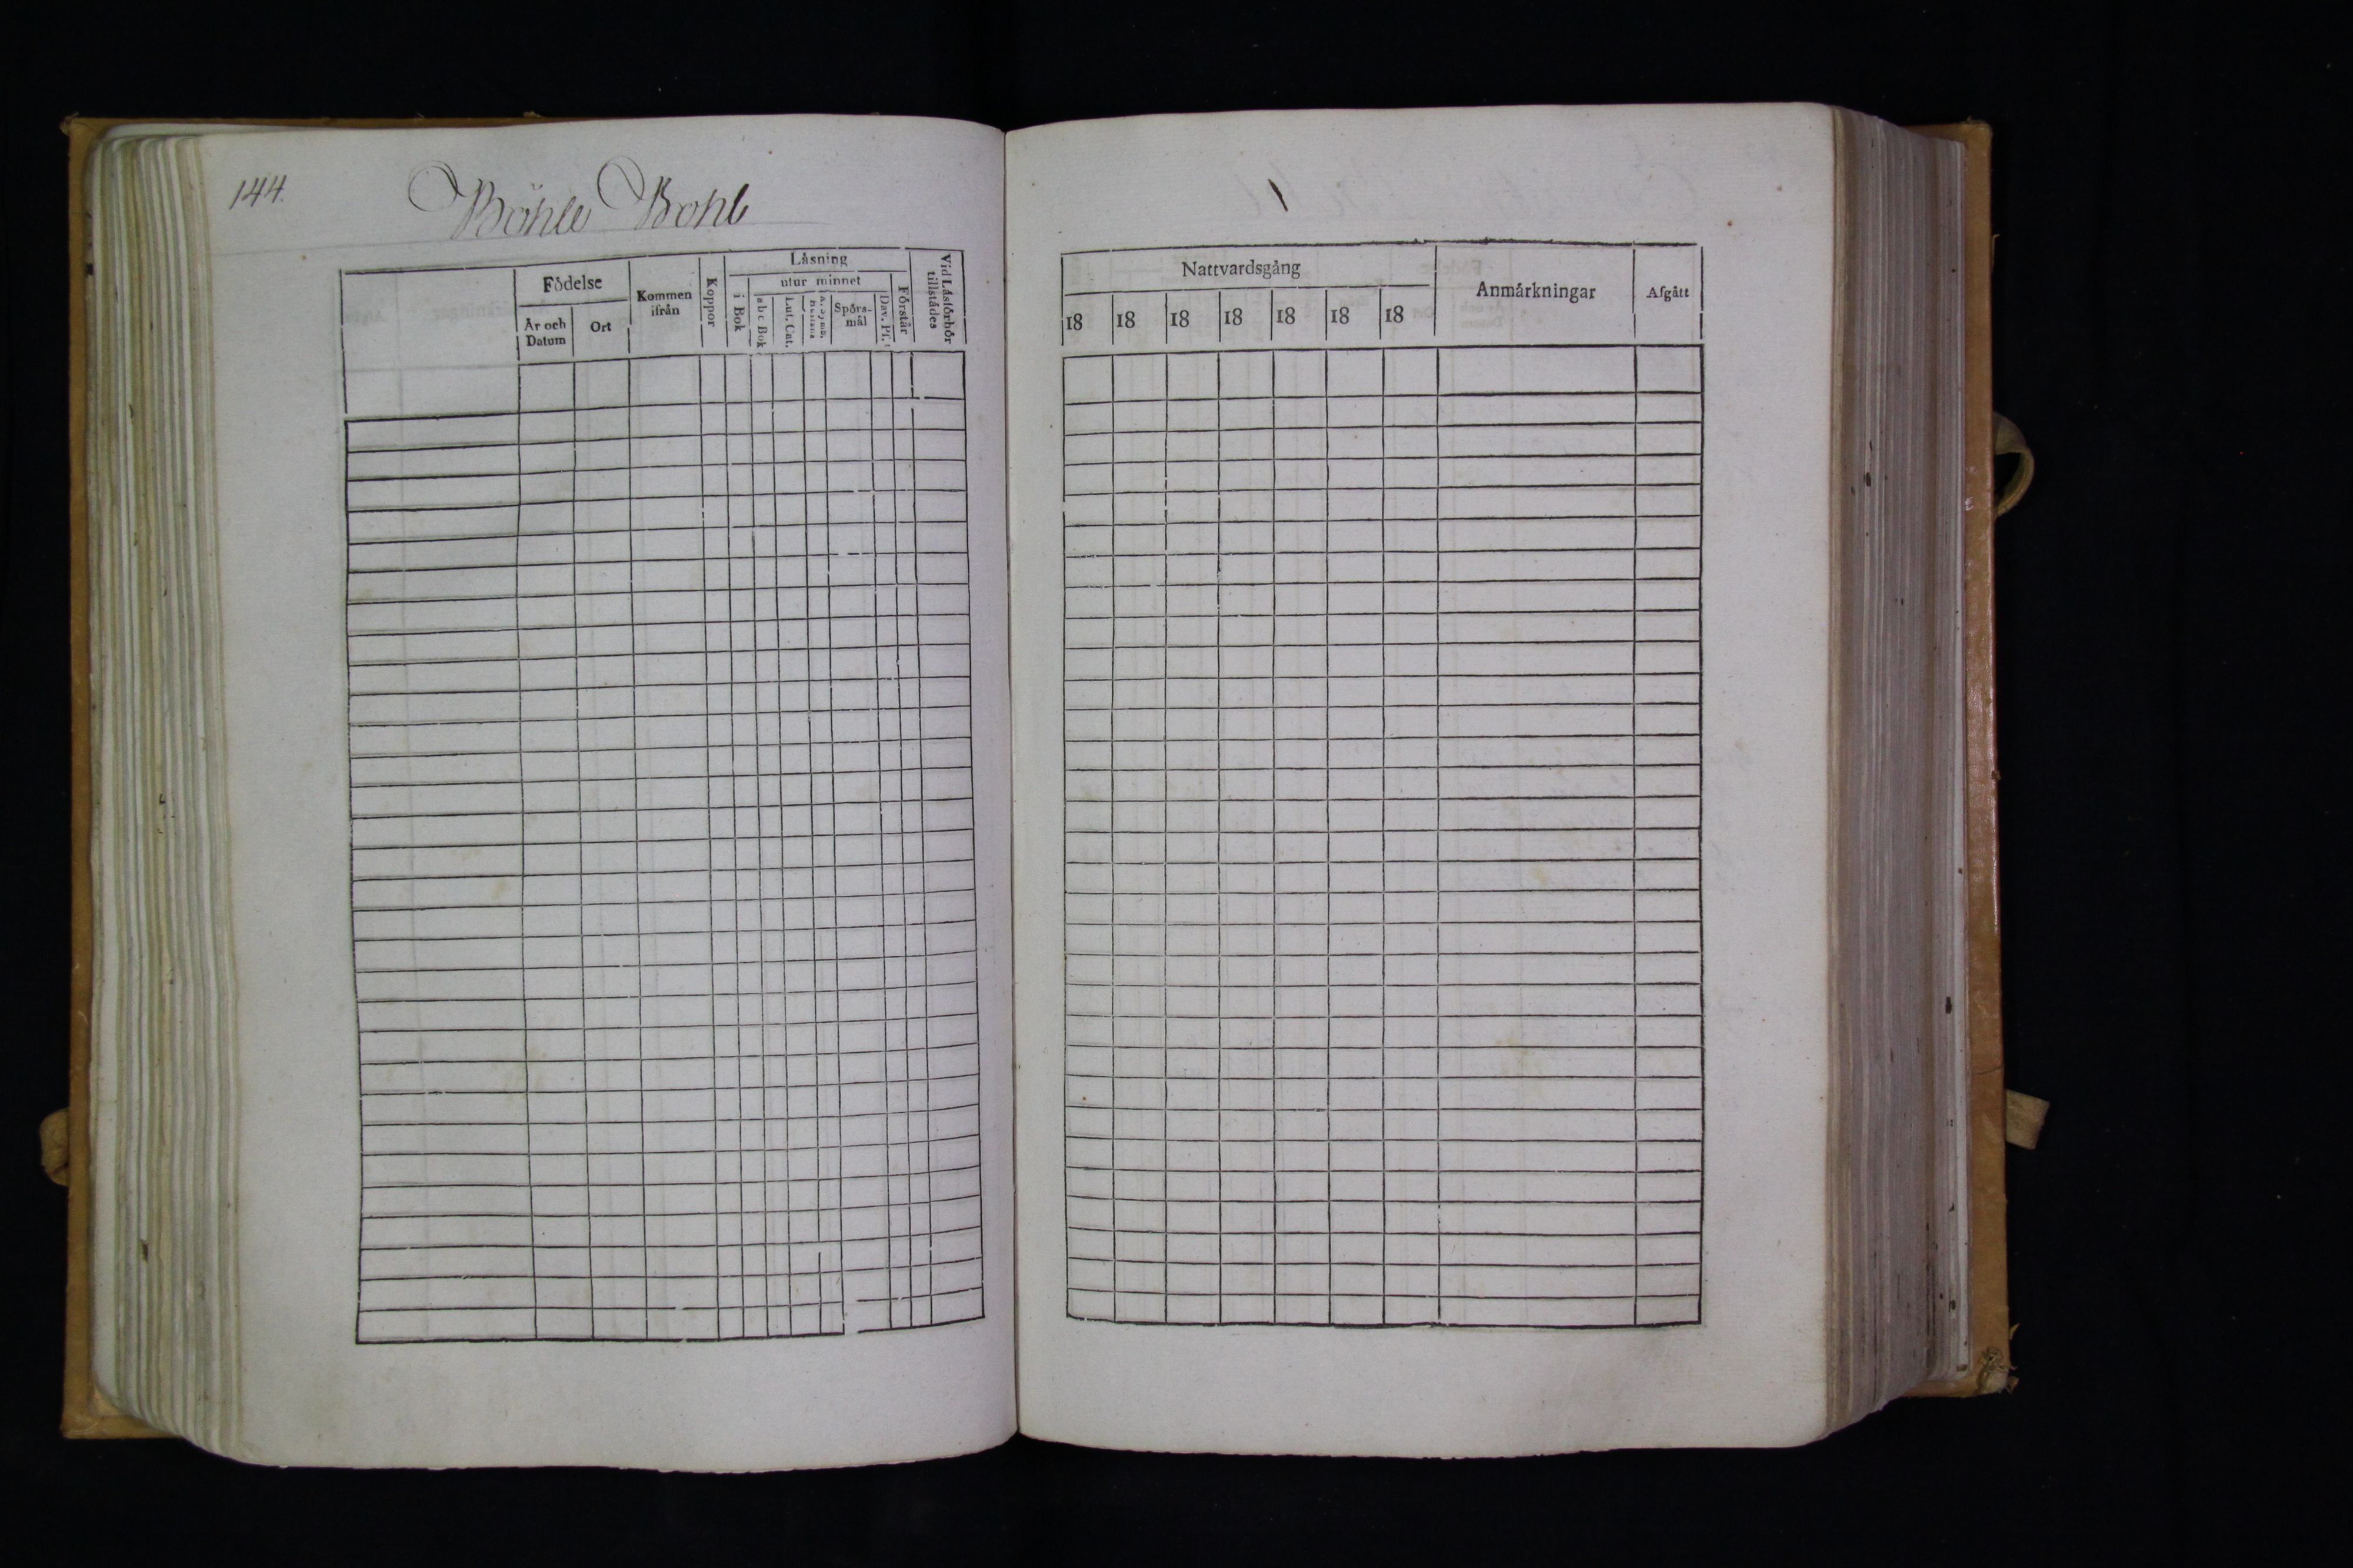 144.
Böhle Bohl
Födelse
År och Datum
Ort
Kommen ifrån
Koppor
Läsning
i Bok
utur minnet
a b c Bok
Lut. Cat.
Spörs-mål
Dav. Ps.
Förstår
Vid Läsförhör tillstädes
Nattvardsgång
18 18 18 18 18 18 18
Anmärkningar
Afgått